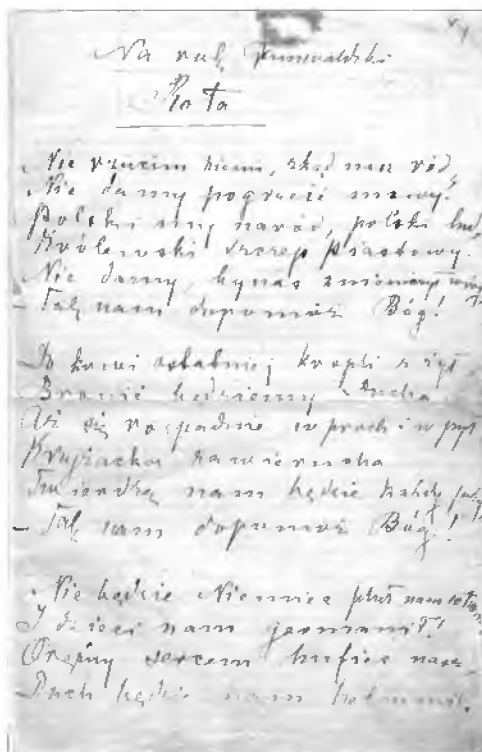 Na rok Grunwaldzki
Rota
Nie rzucim ziemi, skąd nasz ród,
Nie damy pogrześć mowy!
Polski my naród, polski lud,
Królewski szczep piastowy.
Nie damy, by nas zniemczył wróg
– Tak nam dopomóż Bóg!
Do krwi ostatniej kropli z żył
Bronić będziemy Ducha
Aż się rozpadnie w proch i w pył
Krzyżacka zawierucha
Twierdzą nam będzie każdy próg
– Tak nam dopomóż Bóg!
Nie będzie Niemiec pluł nam w twarz
I dzieci nam germanił!
Orężny sercem hufiec nasz
Duch będzie nam hetmanił.